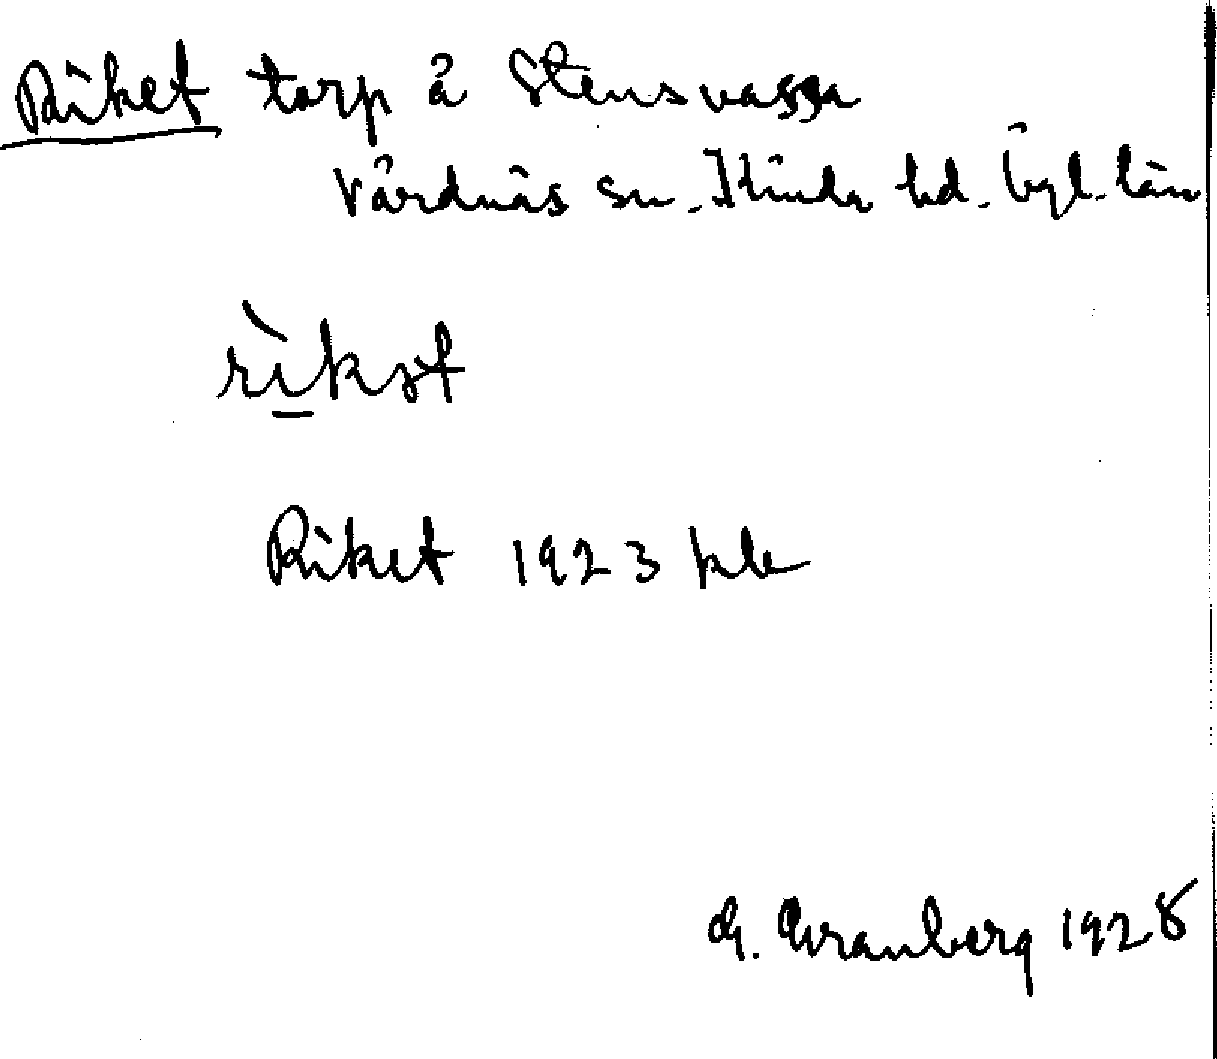 Riket torp å Stensvassa
Vårdnäs sn. Kinda hd. Ögl. län
rìkət
Riket 1923 kle
G. Granberg 1928